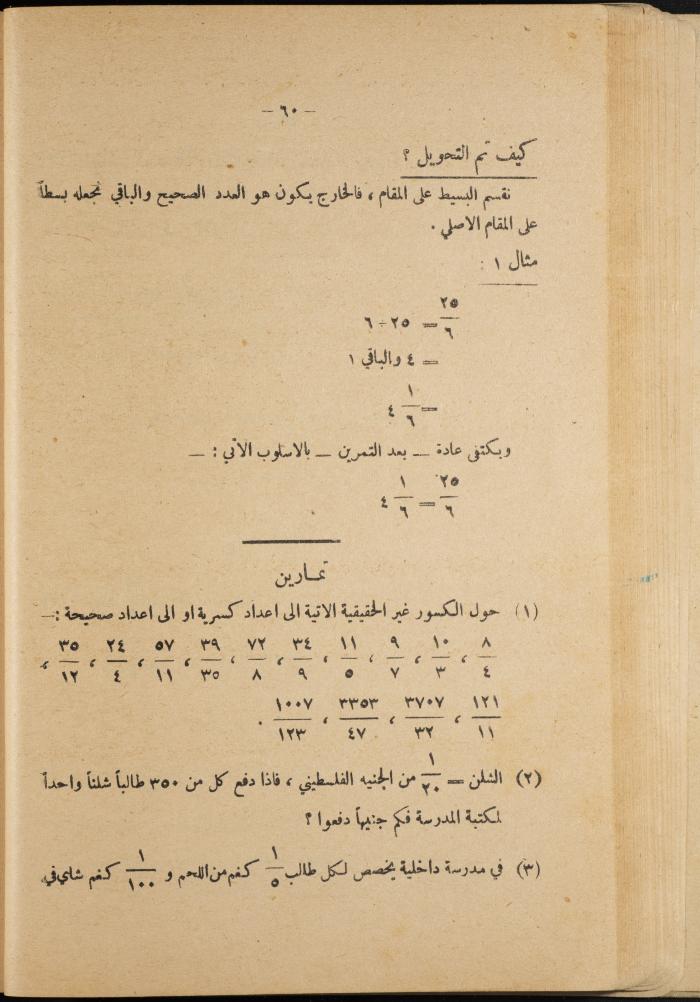 — ٦٠ —
كيف تم التحويل ؟
نقسم البسيط على المقام ، فالخارج يكون هو العدد الصحيح والباقي نجعله بسطاً
على المقام الاصلي .
مثال ١ :
٢٥/٦ = ٢٥ ÷ ٦
= ٤ والباقي ١
= ١/٦ ٤
ويكتفى عادة — بعد التمرين — بالاسلوب الآتي : —
٢٥/٦ = ١/٦ ٤
تمـارين
(١) حول الكسور غير الحقيقية الاتية الى اعداد كسرية او الى اعداد صحيحة : —
٨/٤ ، ١٠/٣ ، ٩/٧ ، ١١/٥ ، ٣٤/٩ ، ٧٢/٨ ، ٣٩/٣٥ ، ٥٧/١١ ، ٢٤/٤ ، ٣٥/١٢ ،
١٢١/١١ ، ٣٧٠٧/٣٢ ، ٣٣٥٣/٤٧ ، ١٠٠٧/١٢٣ .
(٢) الشلن = ١/٢٠ من الجنيه الفلسطيني ، فاذا دفع كل من ٣٥٠ طالباً شلناً واحداً
لمكتبة المدرسة فكم جنيهاً دفعوا ؟
(٣) في مدرسة داخلية يخصص لكل طالب ١/٥ كغم من اللحم و ١/١٠٠ كغم شاي في